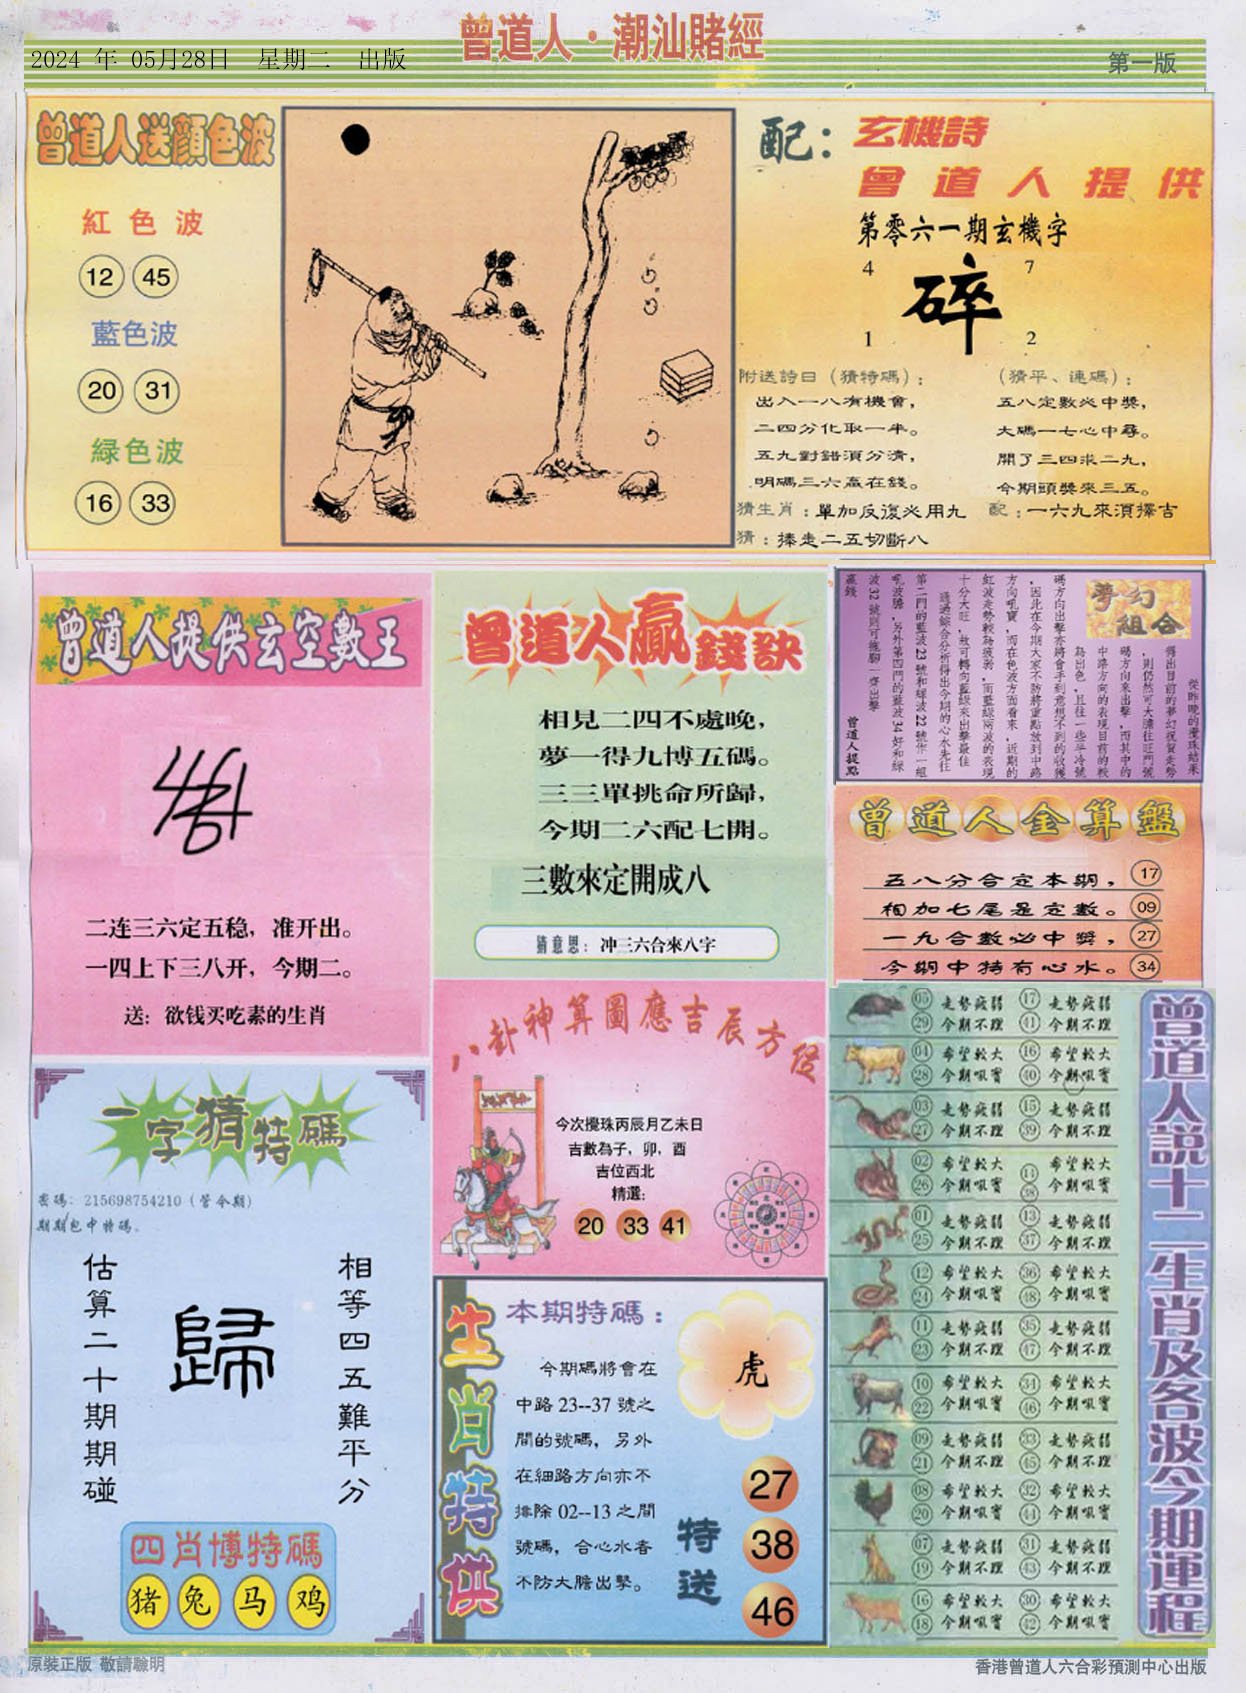 曾道人·潮汕賭經
2024 年 05月28日 星期二 出版
第一版
曾道人送顔色波
紅色波
12 45
藍色波
20 31
緑色波
16 33
配：玄機詩
曾道人提供
第零六一期玄機字
4 7
碎
1 2
附送詩曰（猜特碼）：
出入一八有機會，
二四分化取一半。
五九對錯須分清，
明碼三六贏在錢。
（猜平、連碼）：
五八定數必中獎，
大碼一七心中尋。
開了三四求二九，
今期頭獎來三五。
猜生肖：單加反復必用九
配：一六九來須擇吉
猜：捧走二五切斷八
曾道人提供玄空數王
二连三六定五稳，准开出。
一四上下三八开，今期二。
送：欲钱买吃素的生肖
曾道人贏錢訣
相見二四不處晚，
夢一得九博五碼。
三三單挑命所歸，
今期二六配七開。
三數來定開成八
猜意思：冲三六合來八字
夢幻
組合
從昨晚的攪珠結果
得出目前的夢幻祝賀走勢
，則仍然可大膽往旺門號
碼方向來出擊，而其中的
中路方向的表現目前的較
為出色，且往一些半冷號
碼方向出擊亦將會手到意想不到的收獲
，因此在今期大家不防將重點放到中路
方向吼寶，而在色波方面看來，近期的
紅波走勢較為疲弱，而藍綠兩波的表現
十分大旺，故可轉向藍綠來出擊最佳
通過綜合分析得出今期的心水先往
第二門的藍波23號和綠波22號作一組
吼波膽，另外第四門的藍波34好和綠
波32號則可拖腳一齊出擊
贏錢
曾道人提點
曾道人金算盤
五八分合定本期， 17
相加七尾是定數。 09
一九合數必中獎， 27
今期中特有心水。 34
一字猜特碼
密碼：215698754210（管今期）
期期包中特碼。
估算二十期期碰
歸
相等四五難平分
四肖博特碼
猪 兔 马 鸡
八卦神算圖應吉辰方位
今次攪珠丙辰月乙未日
吉數為子，卯，酉
吉位西北
精選：
20 33 41
生肖特供
本期特碼：
今期碼將會在
中路 23--37 號之
間的號碼，另外
在細路方向亦不
排除 02--13 之間
號碼，合心水者
不防大膽出擊。
虎
特送
27
38
46
曾道人説十二生肖及各波今期運程
05 走勢疲弱 17 走勢疲弱
29 今期不理 41 今期不理
04 希望較大 16 希望較大
28 今期吼寶 40 今期吼寶
03 走勢疲弱 15 走勢疲弱
27 今期不理 39 今期不理
02 希望較大 14 希望較大
26 今期吼寶 38 今期吼寶
01 走勢疲弱 13 走勢疲弱
25 今期不理 37 今期不理
12 希望較大 36 希望較大
24 今期吼寶 48 今期吼寶
11 走勢疲弱 35 走勢疲弱
23 今期不理 47 今期不理
10 希望較大 34 希望較大
22 今期吼寶 46 今期吼寶
09 走勢疲弱 33 走勢疲弱
21 今期不理 45 今期不理
08 希望較大 32 希望較大
20 今期吼寶 44 今期吼寶
07 走勢疲弱 31 走勢疲弱
19 今期不理 43 今期不理
16 希望較大 30 希望較大
18 今期吼寶 42 今期吼寶
原裝正版 敬請聰明
香港曾道人六合彩預測中心出版